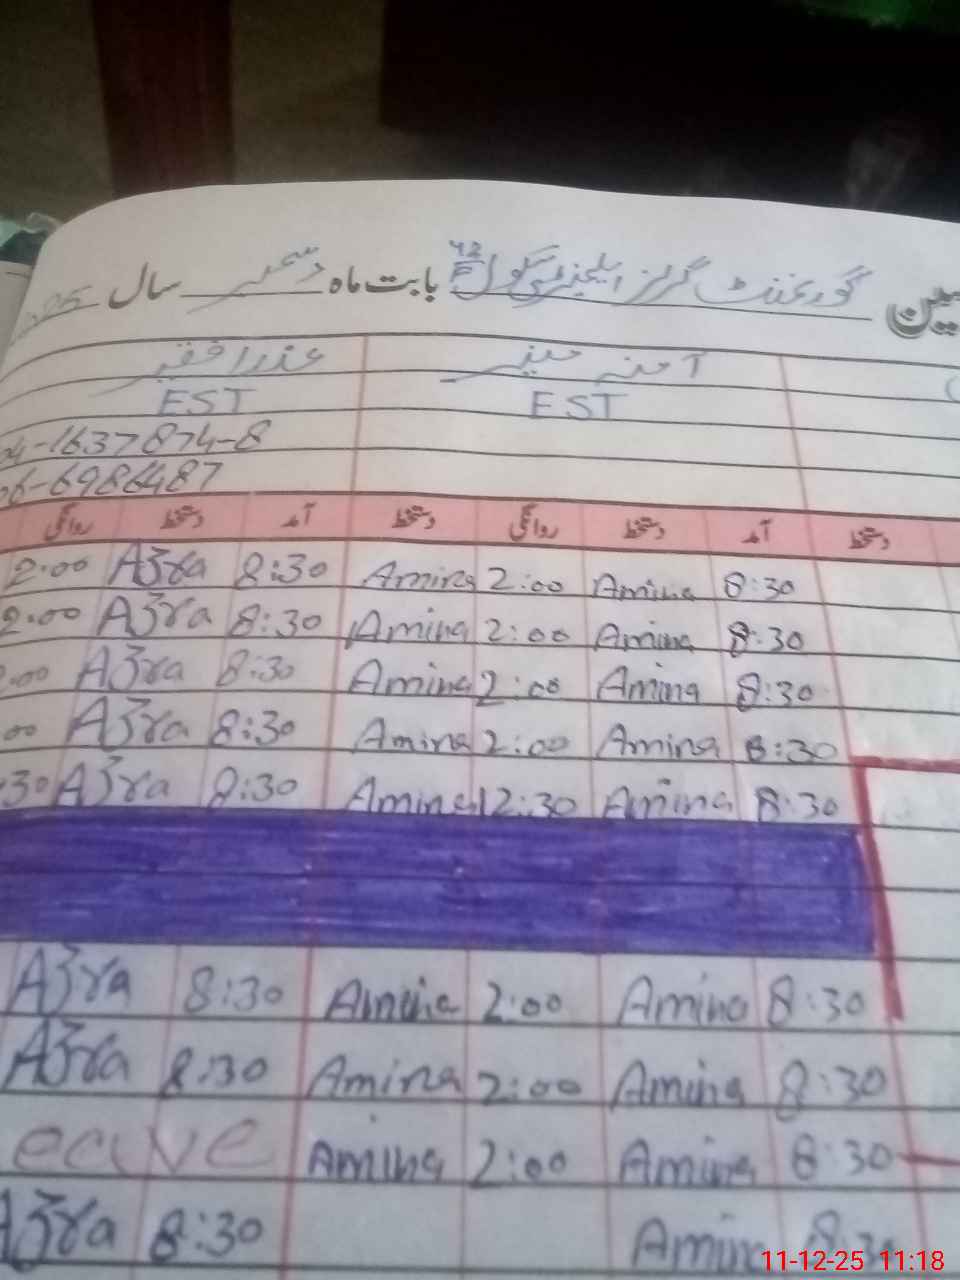 گورنمنٹ گرلز ایلیمنٹری سکول 42 بابت ماہ دسمبر سال
آمنہ عذرا
EST EST
-1637874-8
-6986487
دستخط آمد دستخط روانگی دستخط آمد دستخط روانگی
8:30 Amina 2:00 Amina 8:30 Azra 2:00
8:30 Amina 2:00 Amina 8:30 Azra 2:00
8:30 Amina 2:00 Amina 8:30 Azra :00
8:30 Amina 2:00 Amina 8:30 Azra 00
8:30 Amina 12:30 Amina 8:30 Azra :30
8:30 Amina 2:00 Amina 8:30 Azra
8:30 Amina 2:00 Amina 8:30 Azra
8:30 Amina 2:00 Amina eave
8:30 Amina 8:30 Azra
11-12-25 11:18